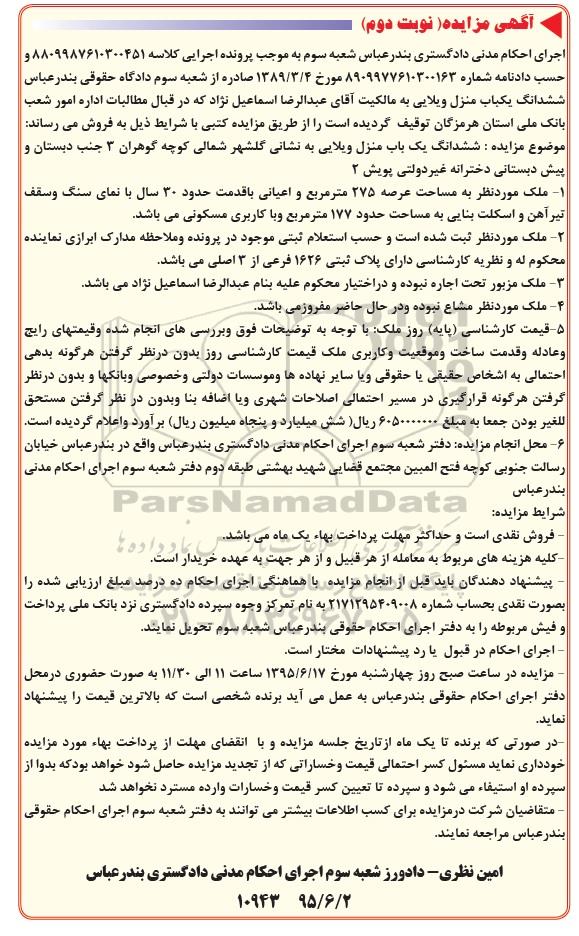 آگهی مزایده( نوبت دوم)
اجرای احکام مدنی دادگستری بندرعباس شعبه سوم به موجب پرونده اجرایی کلاسه ۸۸۰۹۹۸۷۶۱۰۳۰۰۴۵۱ و
حسب دادنامه شماره ۸۹۰۹۹۷۷۶۱۰۳۰۰۱۶۳ مورخ ۱۳۸۹/۳/۴ صادره از شعبه سوم دادگاه حقوقی بندرعباس
ششدانگ یکباب منزل ویلایی به مالکیت آقای عبدالرضا اسماعیل نژاد که در قبال مطالبات اداره امور شعب
بانک ملی استان هرمزگان توقیف گردیده است را از طریق مزایده کتبی با شرایط ذیل به فروش می رساند:
موضوع مزایده : ششدانگ یک باب منزل ویلایی به نشانی گلشهر شمالی کوچه گوهران ۳ جنب دبستان و
پیش دبستانی دخترانه غیردولتی پویش ۲
۱- ملک موردنظر به مساحت عرصه ۲۷۵ مترمربع و اعیانی باقدمت حدود ۳۰ سال با نمای سنگ وسقف
تیرآهن و اسکلت بنایی به مساحت حدود ۱۷۷ مترمربع وبا کاربری مسکونی می باشد.
۲- ملک موردنظر ثبت شده است و حسب استعلام ثبتی موجود در پرونده وملاحظه مدارک ابرازی نماینده
محکوم له و نظریه کارشناسی دارای پلاک ثبتی ۱۶۲۶ فرعی از ۳ اصلی می باشد.
۳- ملک مزبور تحت اجاره نبوده و دراختیار محکوم علیه بنام عبدالرضا اسماعیل نژاد می باشد.
۴- ملک موردنظر مشاع نبوده ودر حال حاضر مفروزمی باشد.
۵-قیمت کارشناسی (پایه) روز ملک: با توجه به توضیحات فوق وبررسی های انجام شده وقیمتهای رایج
وعادله وقدمت ساخت وموقعیت وکاربری ملک قیمت کارشناسی روز بدون درنظر گرفتن هرگونه بدهی
احتمالی به اشخاص حقیقی یا حقوقی ویا سایر نهاده ها وموسسات دولتی وخصوصی وبانکها و بدون درنظر
گرفتن هرگونه قرارگیری در مسیر احتمالی اصلاحات شهری ویا اضافه بنا وبدون در نظر گرفتن مستحق
للغیر بودن جمعا به مبلغ ۶۰۵۰۰۰۰۰۰۰ ریال( شش میلیارد و پنجاه میلیون ریال) برآورد واعلام گردیده است.
۶- محل انجام مزایده: دفتر شعبه سوم اجرای احکام مدنی دادگستری بندرعباس واقع در بندرعباس خیابان
رسالت جنوبی کوچه فتح المبین مجتمع قضایی شهید بهشتی طبقه دوم دفتر شعبه سوم اجرای احکام مدنی
بندرعباس
شرایط مزایده:
- فروش نقدی است و حداکثر مهلت پرداخت بهاء یک ماه می باشد.
-کلیه هزینه های مربوط به معامله از هر قبیل و از هر جهت به عهده خریدار است.
- پیشنهاد دهندگان باید قبل از انجام مزایده با هماهنگی اجرای احکام ده درصد مبلغ ارزیابی شده را
بصورت نقدی بحساب شماره ۲۱۷۱۲۹۵۴۰۹۰۰۸ به نام تمرکز وجوه سپرده دادگستری نزد بانک ملی پرداخت
و فیش مربوطه را به دفتر اجرای احکام حقوقی بندرعباس شعبه سوم تحویل نمایند.
- اجرای احکام در قبول یا رد پیشنهادات مختار است.
- مزایده در ساعت صبح روز چهارشنبه مورخ ۱۳۹۵/۶/۱۷ ساعت ۱۱ الی ۱۱/۳۰ به صورت حضوری درمحل
دفتر اجرای احکام حقوقی بندرعباس به عمل می آید برنده شخصی است که بالاترین قیمت را پیشنهاد
نماید.
-در صورتی که برنده تا یک ماه ازتاریخ جلسه مزایده و با انقضای مهلت از پرداخت بهاء مورد مزایده
خودداری نماید مسئول کسر احتمالی قیمت وخساراتی که از تجدید مزایده حاصل شود خواهد بودکه بدوا از
سپرده او استیفاء می شود و سپرده تا تعیین کسر قیمت وخسارات وارده مسترد نخواهد شد
- متقاضیان شرکت درمزایده برای کسب اطلاعات بیشتر می توانند به دفتر شعبه سوم اجرای احکام حقوقی
بندرعباس مراجعه نمایند.
امین نظری- دادورز شعبه سوم اجرای احکام مدنی دادگستری بندرعباس
۹۵/۶/۲ ۱۰۹۴۳
ParsNamadData